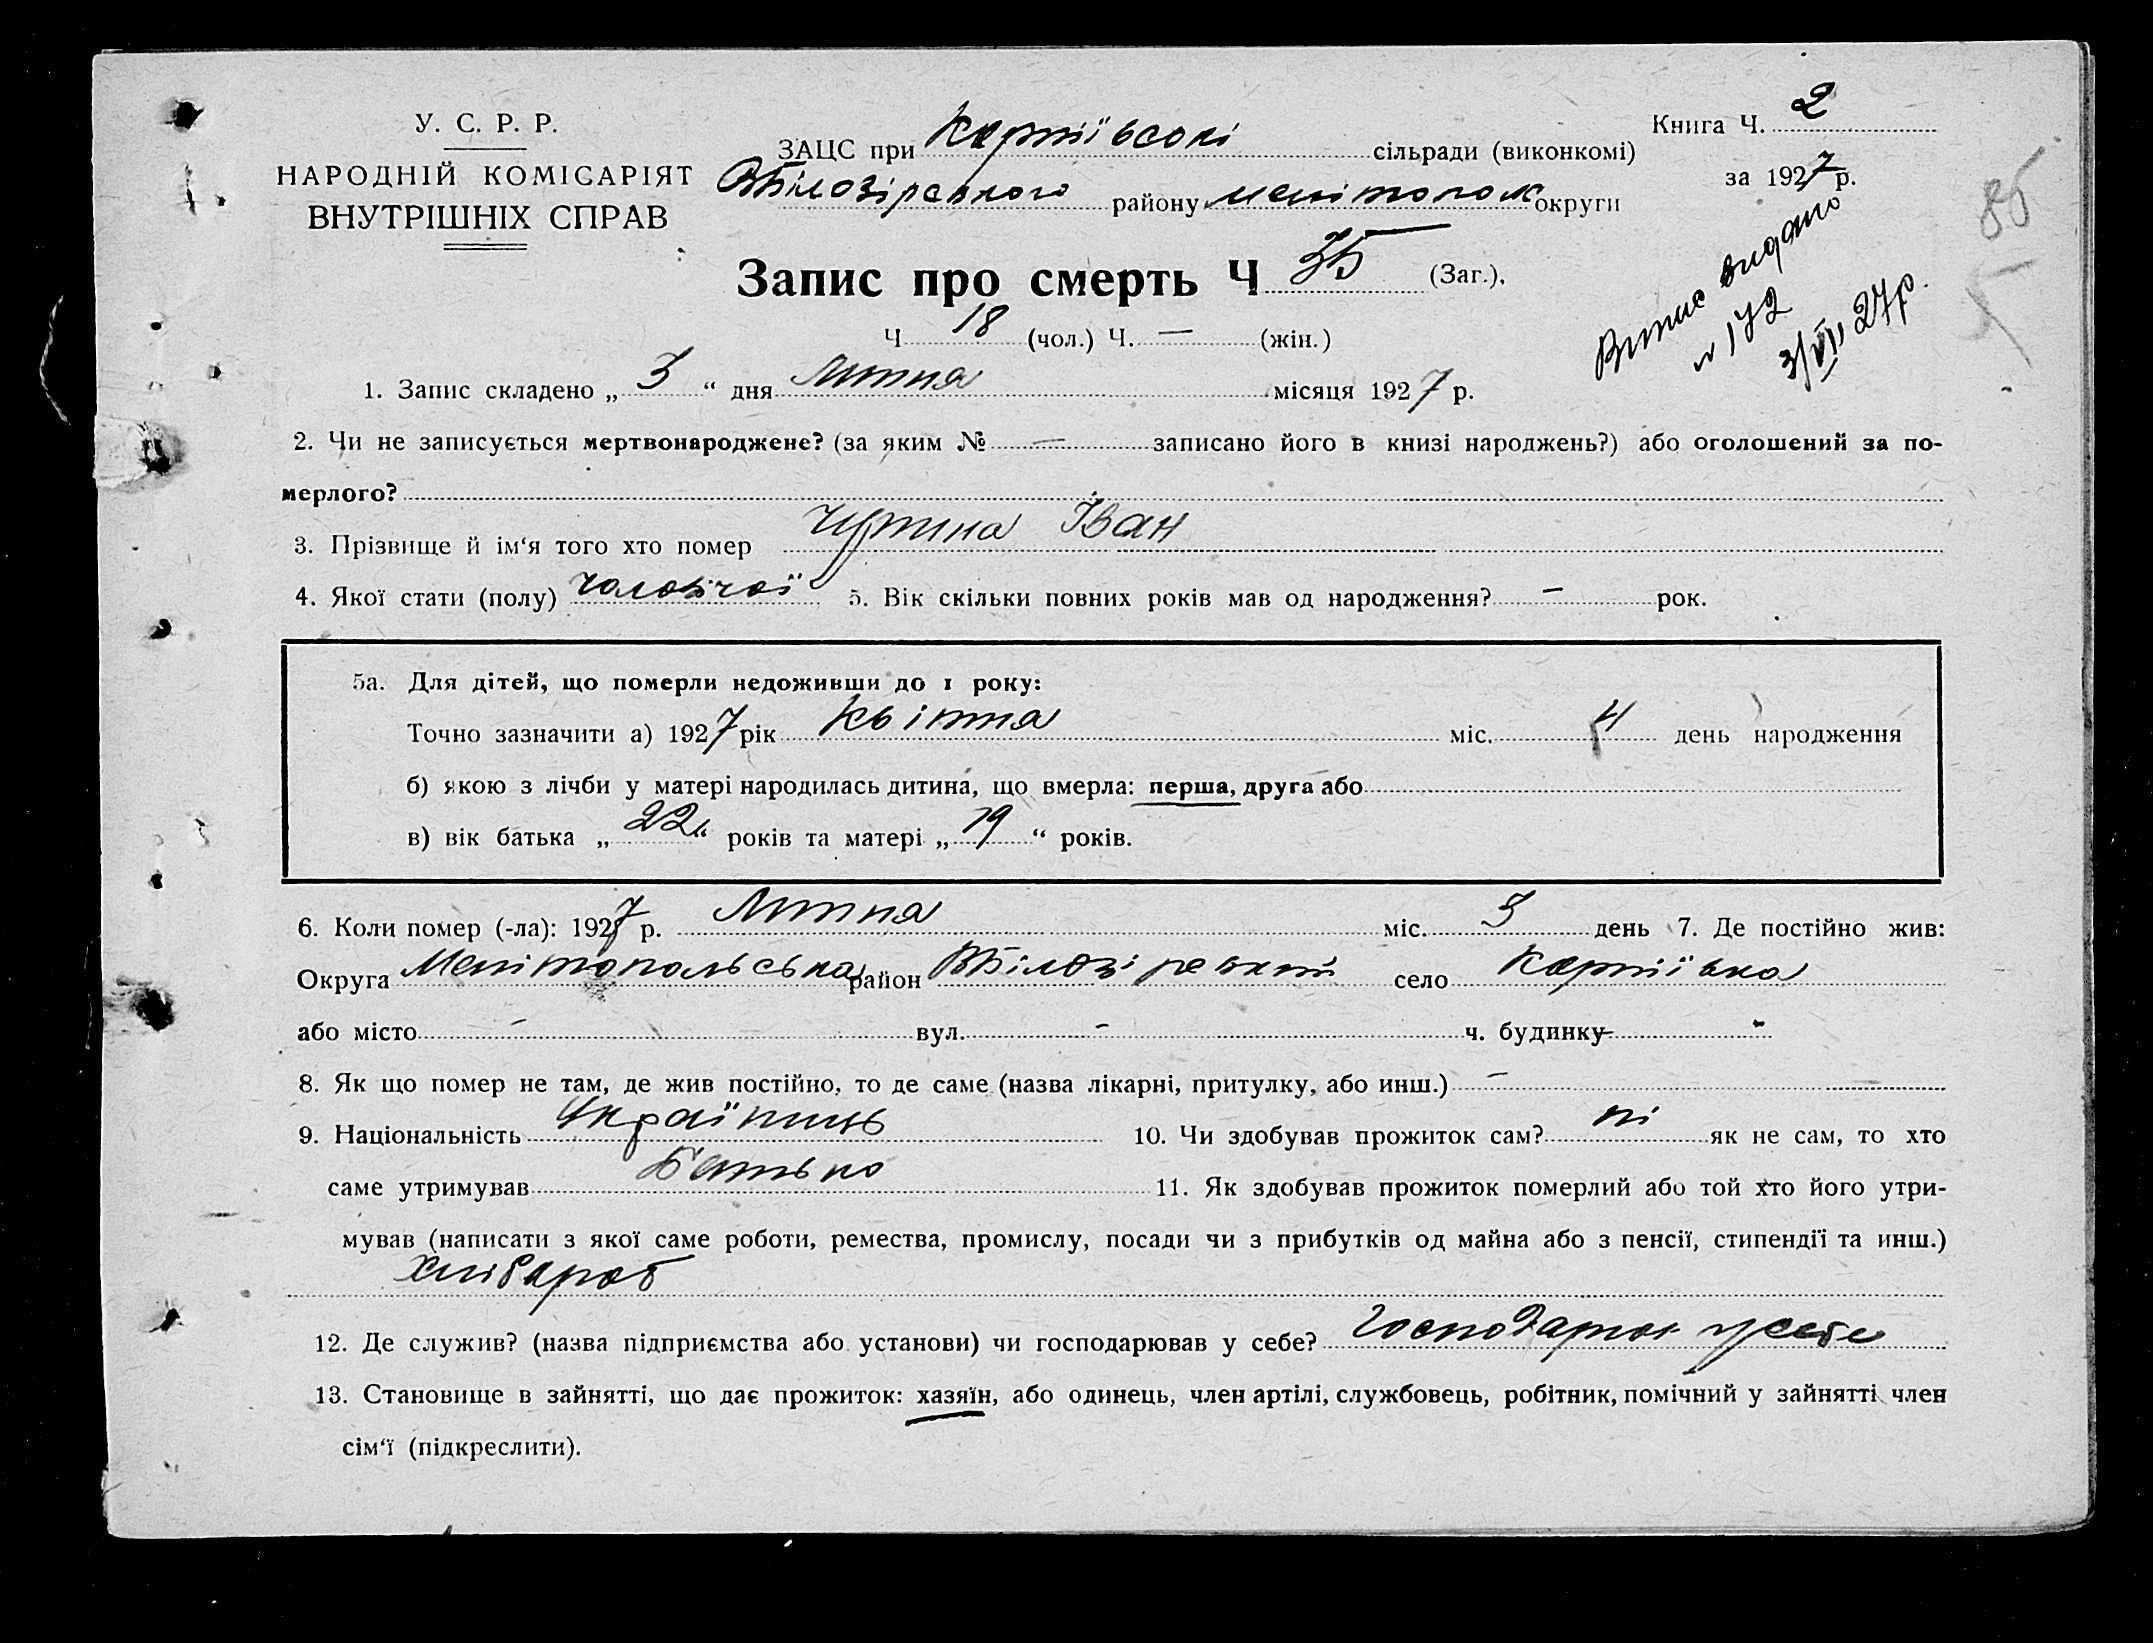 У. С. Р. Р.
НАРОДНІЙ КОМІСАРІЯТ
ВНУТРІШНІХ СПРАВ
Книга Ч. 2
за 1927 р.
85
ЗАЦС при сільради (виконкомі)
ВБілозірського району Мелітопол округи
Запис про смерть Ч 35 (Заг.),
Ч 18 (чол.) Ч. — (жін.)
Витис видано
№ 172
3/VII 27р.
1. Запис складено „ 3 “ дня Липня місяця 1927 р.
2. Чи не записується мертвонароджене? (за яким № — записано його в книзі народжень?) або оголошений за по-
мерлого?
3. Прізвище й ім‘я того хто помер Іван
4. Якої стати (полу) чоловічої 5. Вік скільки повних років мав од народження? — рок.
5а. Для дітей, що померли недоживши до 1 року:
Точно зазначити а) 1927 рік Квітня міс. 4 день народження
б) якою з лічби у матері народилась дитина, що вмерла: перша, друга або
в) вік батька „ 22 “ років та матері „ 19 “ років.
6. Коли помер (-ла): 1927 р. Липня міс. 3 день 7. Де постійно жив:
Округа Мелітопольська район ВБілозірський село
або місто - вул. - ч. будинку -
8. Як що помер не там, де жив постійно, то де саме (назва лікарні, притулку, або инш.) —
9. Національність Українць 10. Чи здобував прожиток сам? ні як не сам, то хто
саме утримував Батько 11. Як здобував прожиток померлий або той хто його утри-
мував (написати з якої саме роботи, ремества, промислу, посади чи з прибутків од майна або з пенсії, стипендії та инш.)
Хлібароб
12. Де служив? (назва підприємства або установи) чи господарював у себе? Господарює у себе
13. Становище в зайнятті, що дає прожиток: хазяїн, або одинець, член артілі, службовець, робітник, помічний у зайнятті член
сім‘ї (підкреслити).